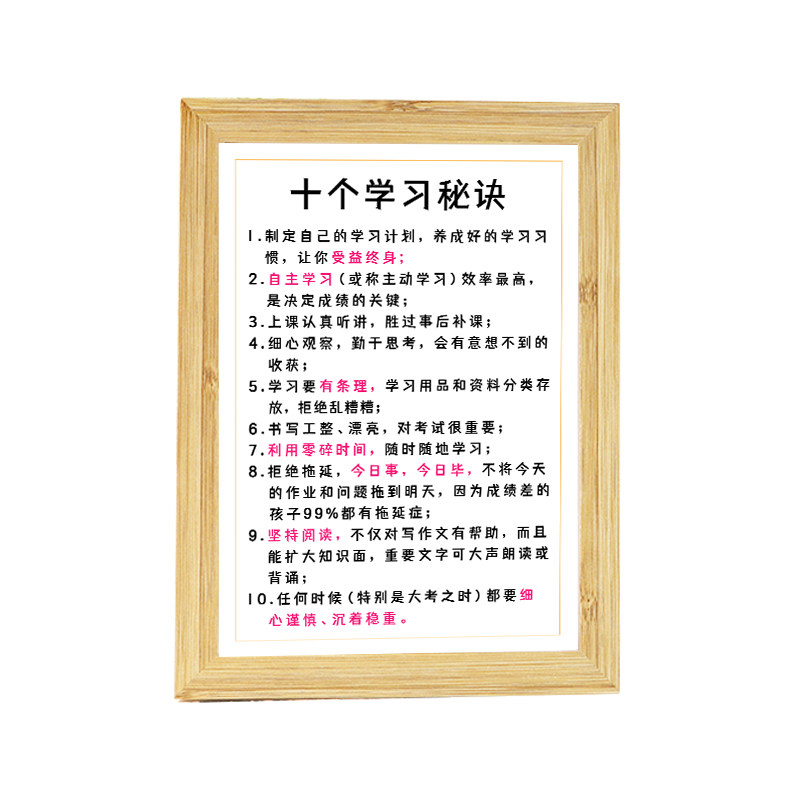 十个学习秘诀
1.制定自己的学习计划，养成好的学习习
惯，让你受益终身；
2.自主学习（或称主动学习）效率最高，
是决定成绩的关键；
3.上课认真听讲，胜过事后补课；
4.细心观察，勤于思考，会有意想不到的
收获；
5.学习要有条理，学习用品和资料分类存
放，拒绝乱糟糟；
6.书写工整、漂亮，对考试很重要；
7.利用零碎时间，随时随地学习；
8.拒绝拖延，今日事，今日毕，不将今天
的作业和问题拖到明天，因为成绩差的
孩子99%都有拖延症；
9.坚持阅读，不仅对写作文有帮助，而且
能扩大知识面，重要文字可大声朗读或
背诵；
10.任何时候（特别是大考之时）都要细
心谨慎、沉着稳重。